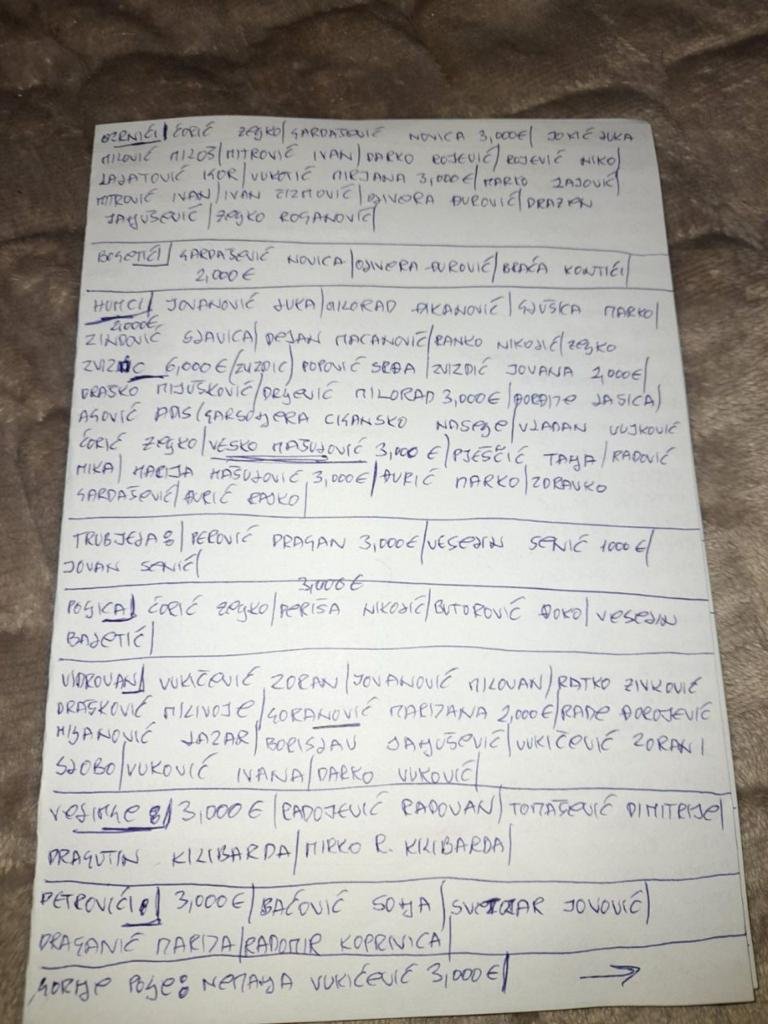 OZRNIĆI| ĆORIĆ ZEljKO/GARDAŠEVIĆ NOVICA 3,000€/ JOKIĆ LUKA
MILOVIĆ MILOŠ/MITROVIĆ IVAN/DARKO ROJEVIĆ/ROJEVIĆ NIKO/
LALATOVIĆ IGOR/VUKOTIĆ MIRJANA 3,000€/MARKO LALOVIĆ/
MITROVIĆ IVAN/IVAN ZIZMOVIĆ/OLIVERA ĐUROVIĆ/DRAZEN
LAljUŠEVIĆ/ZEljKO ROGANOVIĆ/
BOGETIĆI/ GARDAŠEVIĆ NOVICA/OLIVERA ĐUROVIĆ/BRAĆA KONTIĆI/
2,000€
HUMCI/ JOVANOVIĆ LUKA/MILORAD ĐIKANOVIĆ/GLUŠKA MARKO/
2,000€
ZINDOVIĆ SLAVICA/DEJAN MACANOVIĆ/RANKO NIKOLIĆ/ZEljKO
ZVIZDIĆ 6,000€/ZVIZDIĆ/POPOVIĆ SRĐA/ZVIZDIĆ JOVANA 2,000€/
DRAŠKO MIJUŠKOVIĆ/DRljEVIĆ MILORAD 3,000€/ĐORĐIJE LASICA/
AGOVIĆ ADIS/GARSONJERA CIGANSKO NASEljE/VLADAN VUJKOVIĆ
ĆORIĆ ZEljKO/VESKO MAŠULOVIĆ 3,000€/PJEŠČIĆ TANJA/RADOVIĆ
MIKA/ MARIJA MAŠULOVIĆ 3,000€/ĐURIĆ MARKO/ZDRAVKO
GARDAŠEVIĆ/ĐURIĆ RAJKO/
TRUBJELA:/PEROVIĆ DRAGAN 3,000€/VESELIN SENIĆ 1000€/
JOVAN SENIĆ/
3,000€
POljICA/ ĆORIĆ ZEljKO/PERIŠA NIKOLIĆ/BUTOROVIĆ ĐOKO/VESELIN
BALETIĆ/
VIDROVAN/ VUKIČEVIĆ ZORAN/JOVANOVIĆ MILOVAN/RATKO ZIVKOVIĆ
DRAŠKOVIĆ MILIVOJE/GORANOVIĆ MARIJANA 2,000€/RADE ĐOROJEVIĆ
MIljANOVIĆ LAZAR/BORISLAV LAljUŠEVIĆ/VUKIČEVIĆ ZORAN I
SLOBO/VUKOVIĆ IVANA/DARKO VUKOVIĆ/
VELIMljE:/ 3,000€/RADOJEVIĆ RADOVAN/TOMAŠEVIĆ DIMITRIJE/
DRAGUTIN KILIBARDA/MIRKO R. KILIBARDA/
PETROVIĆI:/ 3,000€/BAĆOVIĆ SONJA/SVETLAR JOVOVIĆ/
DRAGANIĆ MARIJA/RADOMIR KOPRIVICA/
GORNJE POljE: NEMANJA VUKIČEVIĆ 3,000€/ →